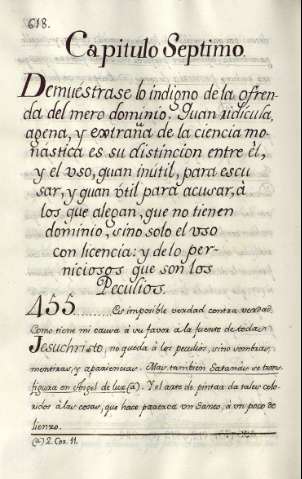 618.
Capitulo Septimo
Demuéstrase lo indigno de la ofren-
da del mero dominio. Quan ridícula,
agena, y extraña de la ciencia mo-
nástica es su distincion entre él,
y el vso, quan inútil, para escu
sar, y quan vtil para acusar, á
los que alegan, que no tienen
dominio, sino solo el vso
con licencia: y de lo per-
niciosos que son los
Peculios.
455.......... Es imposible verdad contra verdad.
Como tiene mi causa á su favor a la fuente de todas
Jesuchristo, no queda á los peculios, sino sombras,
mentiras, y apariencias. Mas, tambien Satanás se trans-
figura en Angel de luz (a). Y el arte de pintar da tales colo-
ridos á las cosas, que hace parezca vn Sanco, á vn poco de
lienzo.
(a) 2. Cor. 11.